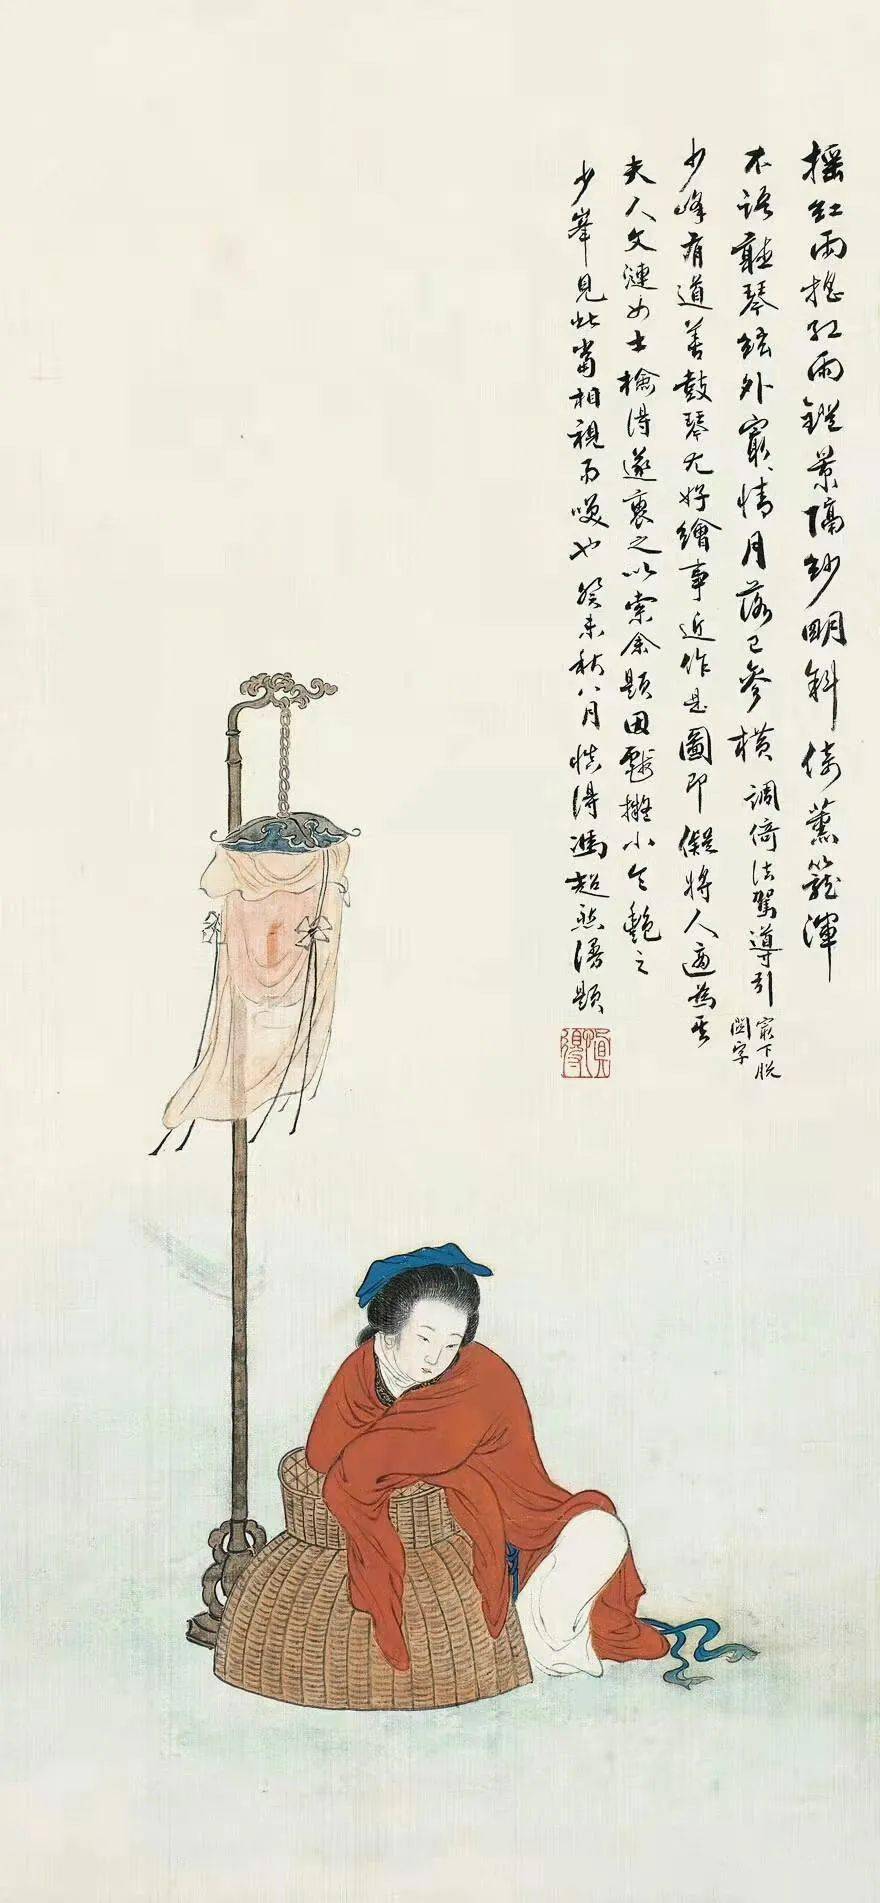 搖紅雨搖紅雨鐙景隔紗明斜倚薰籠渾
不語聽琴絃外㝡情月落已參橫 調倚法駕導引 㝡下脫
關字
少峰有道善鼓琴尤好繪事近作是圖即儗將人適為其
夫人文漣女士檢得遂裛之以索余題因戲擬小令艷之
少峯見此當相視而咲也 癸未秋八月慎得馮超然漫題
慎得